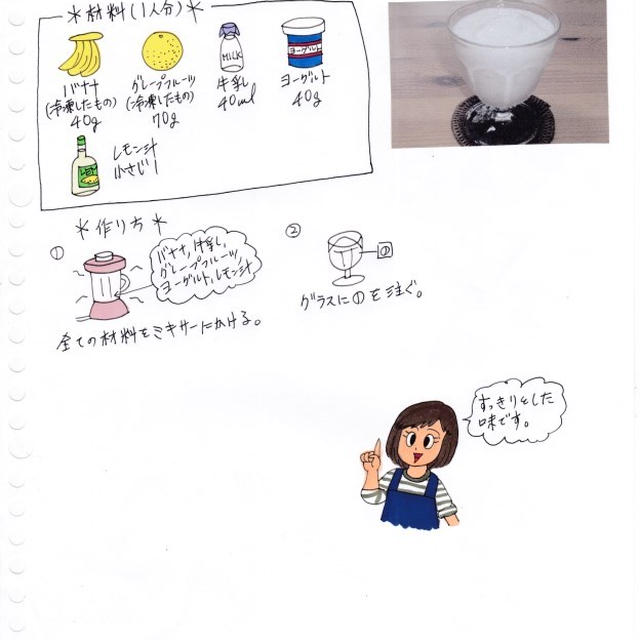 ＊材料(1人分)＊
バナナ
(冷凍したもの)
40g
グレープフルーツ
(冷凍したもの)
70g
MILK
牛乳
40ml
ヨーグルト
ヨーグルト
40g
レモン汁
小さじ1
＊作り方＊
①
バナナ,牛乳,
グレープフルーツ,
ヨーグルト,レモン汁
全ての材料をミキサーにかける。
②
①
グラスに①を注ぐ。
すっきりとした
味です。